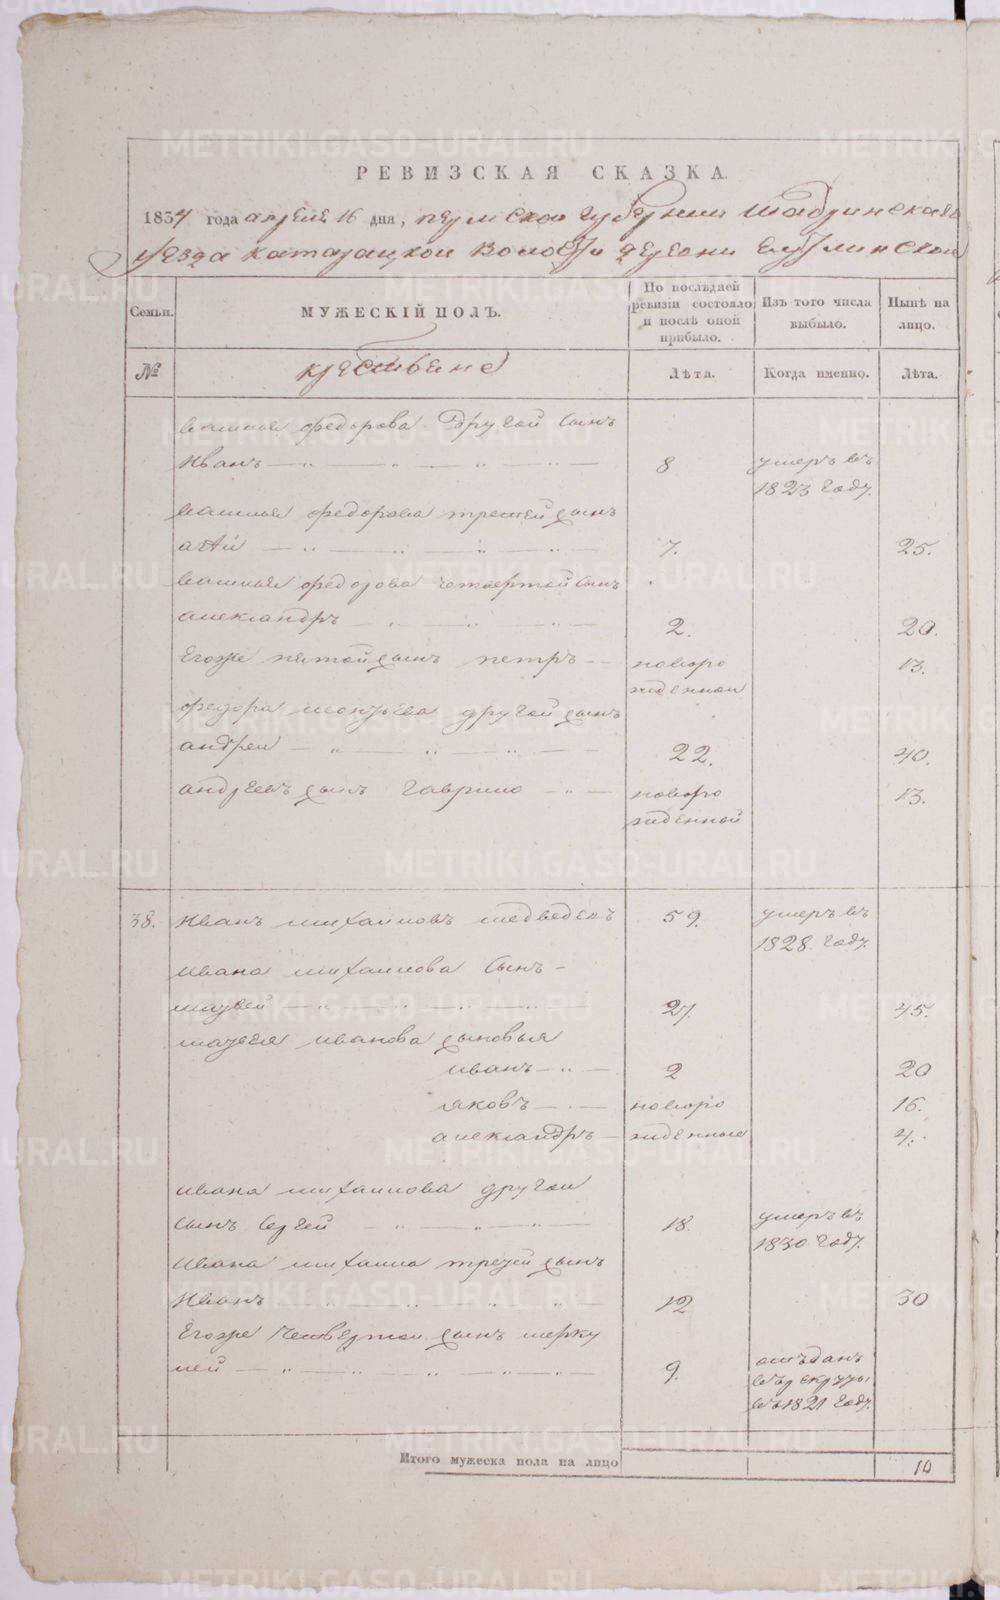 РЕВИЗСКАЯ СКАЗКА.
1834 года апреля 16 дня, пермской губернии Шадринскаго
уезда Катайцкой волости деревни
Семьи.
МУЖЕСКІЙ ПОЛЪ.
По послѣдней ревизіи состояло и послѣ оной прибыло.
Изъ того числа выбыло.
Нынѣ на лицо.
№
крестьяне
Лѣта.
Когда именно.
Лѣта.
федорова другой сынъ
Иванъ 8 умеръ въ
1823 году.
федорова третей сынъ
7. 25.
федорова четвертой сынъ
александръ 2. 20.
Егоже пятой сынъ петръ новоро 13.
жденной
федора другой сынъ
андрей 22. 40.
андреевъ сынъ гаврило новоро 13.
жденной
38. Иванъ михаиловъ медведевъ 59. умеръ въ
1828 году.
ивана михаилова сынъ
матвей 27. 45.
матвея иванова сыновья
иванъ 2 20
яковъ новоро 16.
александръ жденные 4.
ивана михаилова другой
сынъ Сергей 18. умеръ въ
1830 году.
ивана михаила третей сынъ
Иванъ 12 30
Егоже четвертой сынъ мерку
лей 9. отъданъ
въ рекруты
въ 1821 году.
Итого мужеска пола на лицо 10
METRIKI.GASO-URAL.RU